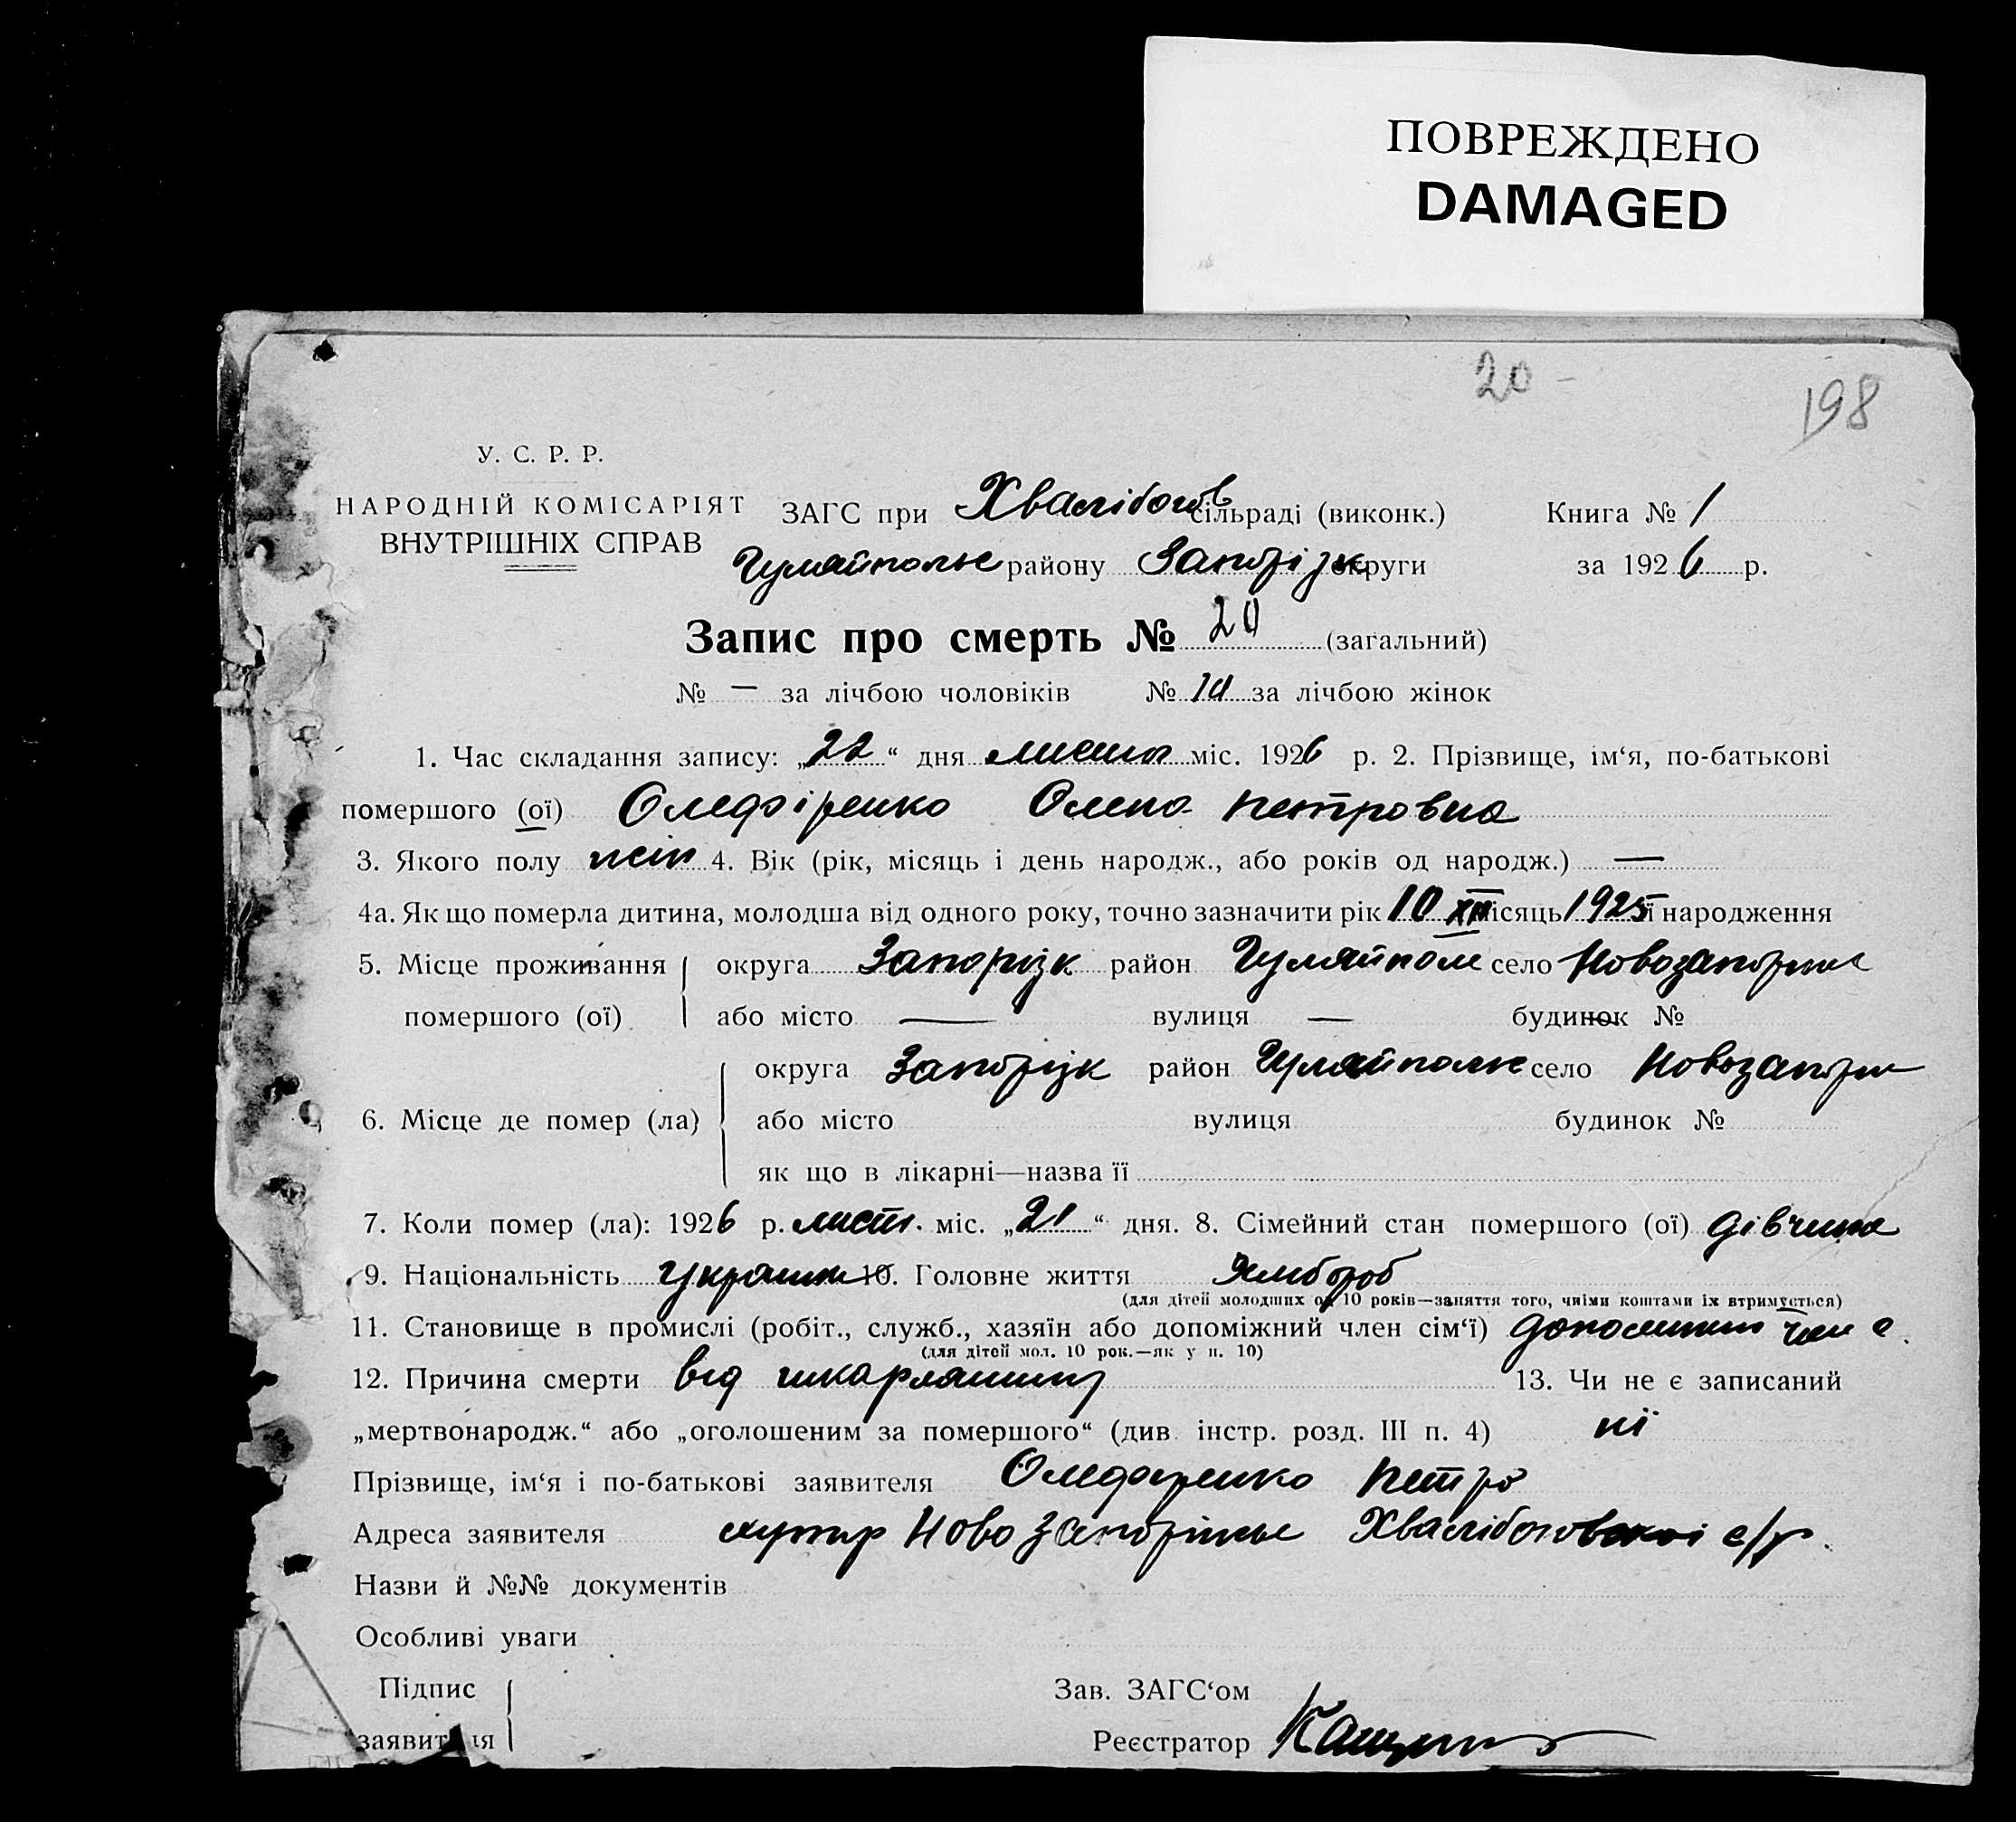 ПОВРЕЖДЕНО
DAMAGED
20 -
198
У. С. Р. Р.
НАРОДНІЙ КОМІСАРІЯТ
ВНУТРІШНІХ СПРАВ
ЗАГС при Хвалібогов сільраді (виконк.) Книга № 1
Гуляйпольє району Запоріжк округи за 1926 р.
Запис про смерть № 20 (загальний)
№ — за лічбою чоловіків № 10 за лічбою жінок
1. Час складання запису: „22“ дня листп міс. 1926 р. 2. Прізвище, ім‘я, по-батькові
помершого (ої) Олефіренко Олена Петровна
3. Якого полу жін 4. Вік (рік, місяць і день народж., або років од народж.) —
4а. Як що померла дитина, молодша від одного року, точно зазначити рік 10 XII місяць 1925 її народження
5. Місце проживання округа Запоріжк район Гуляйполе село
помершого (ої) або місто — вулиця — будинок №
округа Запоріжк район Гуляйпольє село
6. Місце де помер (ла) або місто вулиця будинок №
як що в лікарні—назва її
7. Коли помер (ла): 1926 р. лист. міс. „21“ дня. 8. Сімейний стан помершого (ої) дівчина
9. Національність Украинк 10. Головне життя Хлібороб
(для дітей молодших од 10 років—заняття того, чиїми коштами їх втримується)
11. Становище в промислі (робіт., служб., хазяїн або допоміжний член сім‘ї) член с.
(для дітей мол. 10 рок.—як у п. 10)
12. Причина смерти від шкарлатини 13. Чи не є записаний
„мертвонародж.“ або „оголошеним за помершого“ (див. інстр. розд. III п. 4) ні
Прізвище, ім‘я і по-батькові заявителя Олефіренко Петро
Адреса заявителя хутір Новозапоріжьє Хвалібоговскоі с/р.
Назви й №№ документів
Особливі уваги
Підпис Зав. ЗАГС‘ом
заявителя Реєстратор